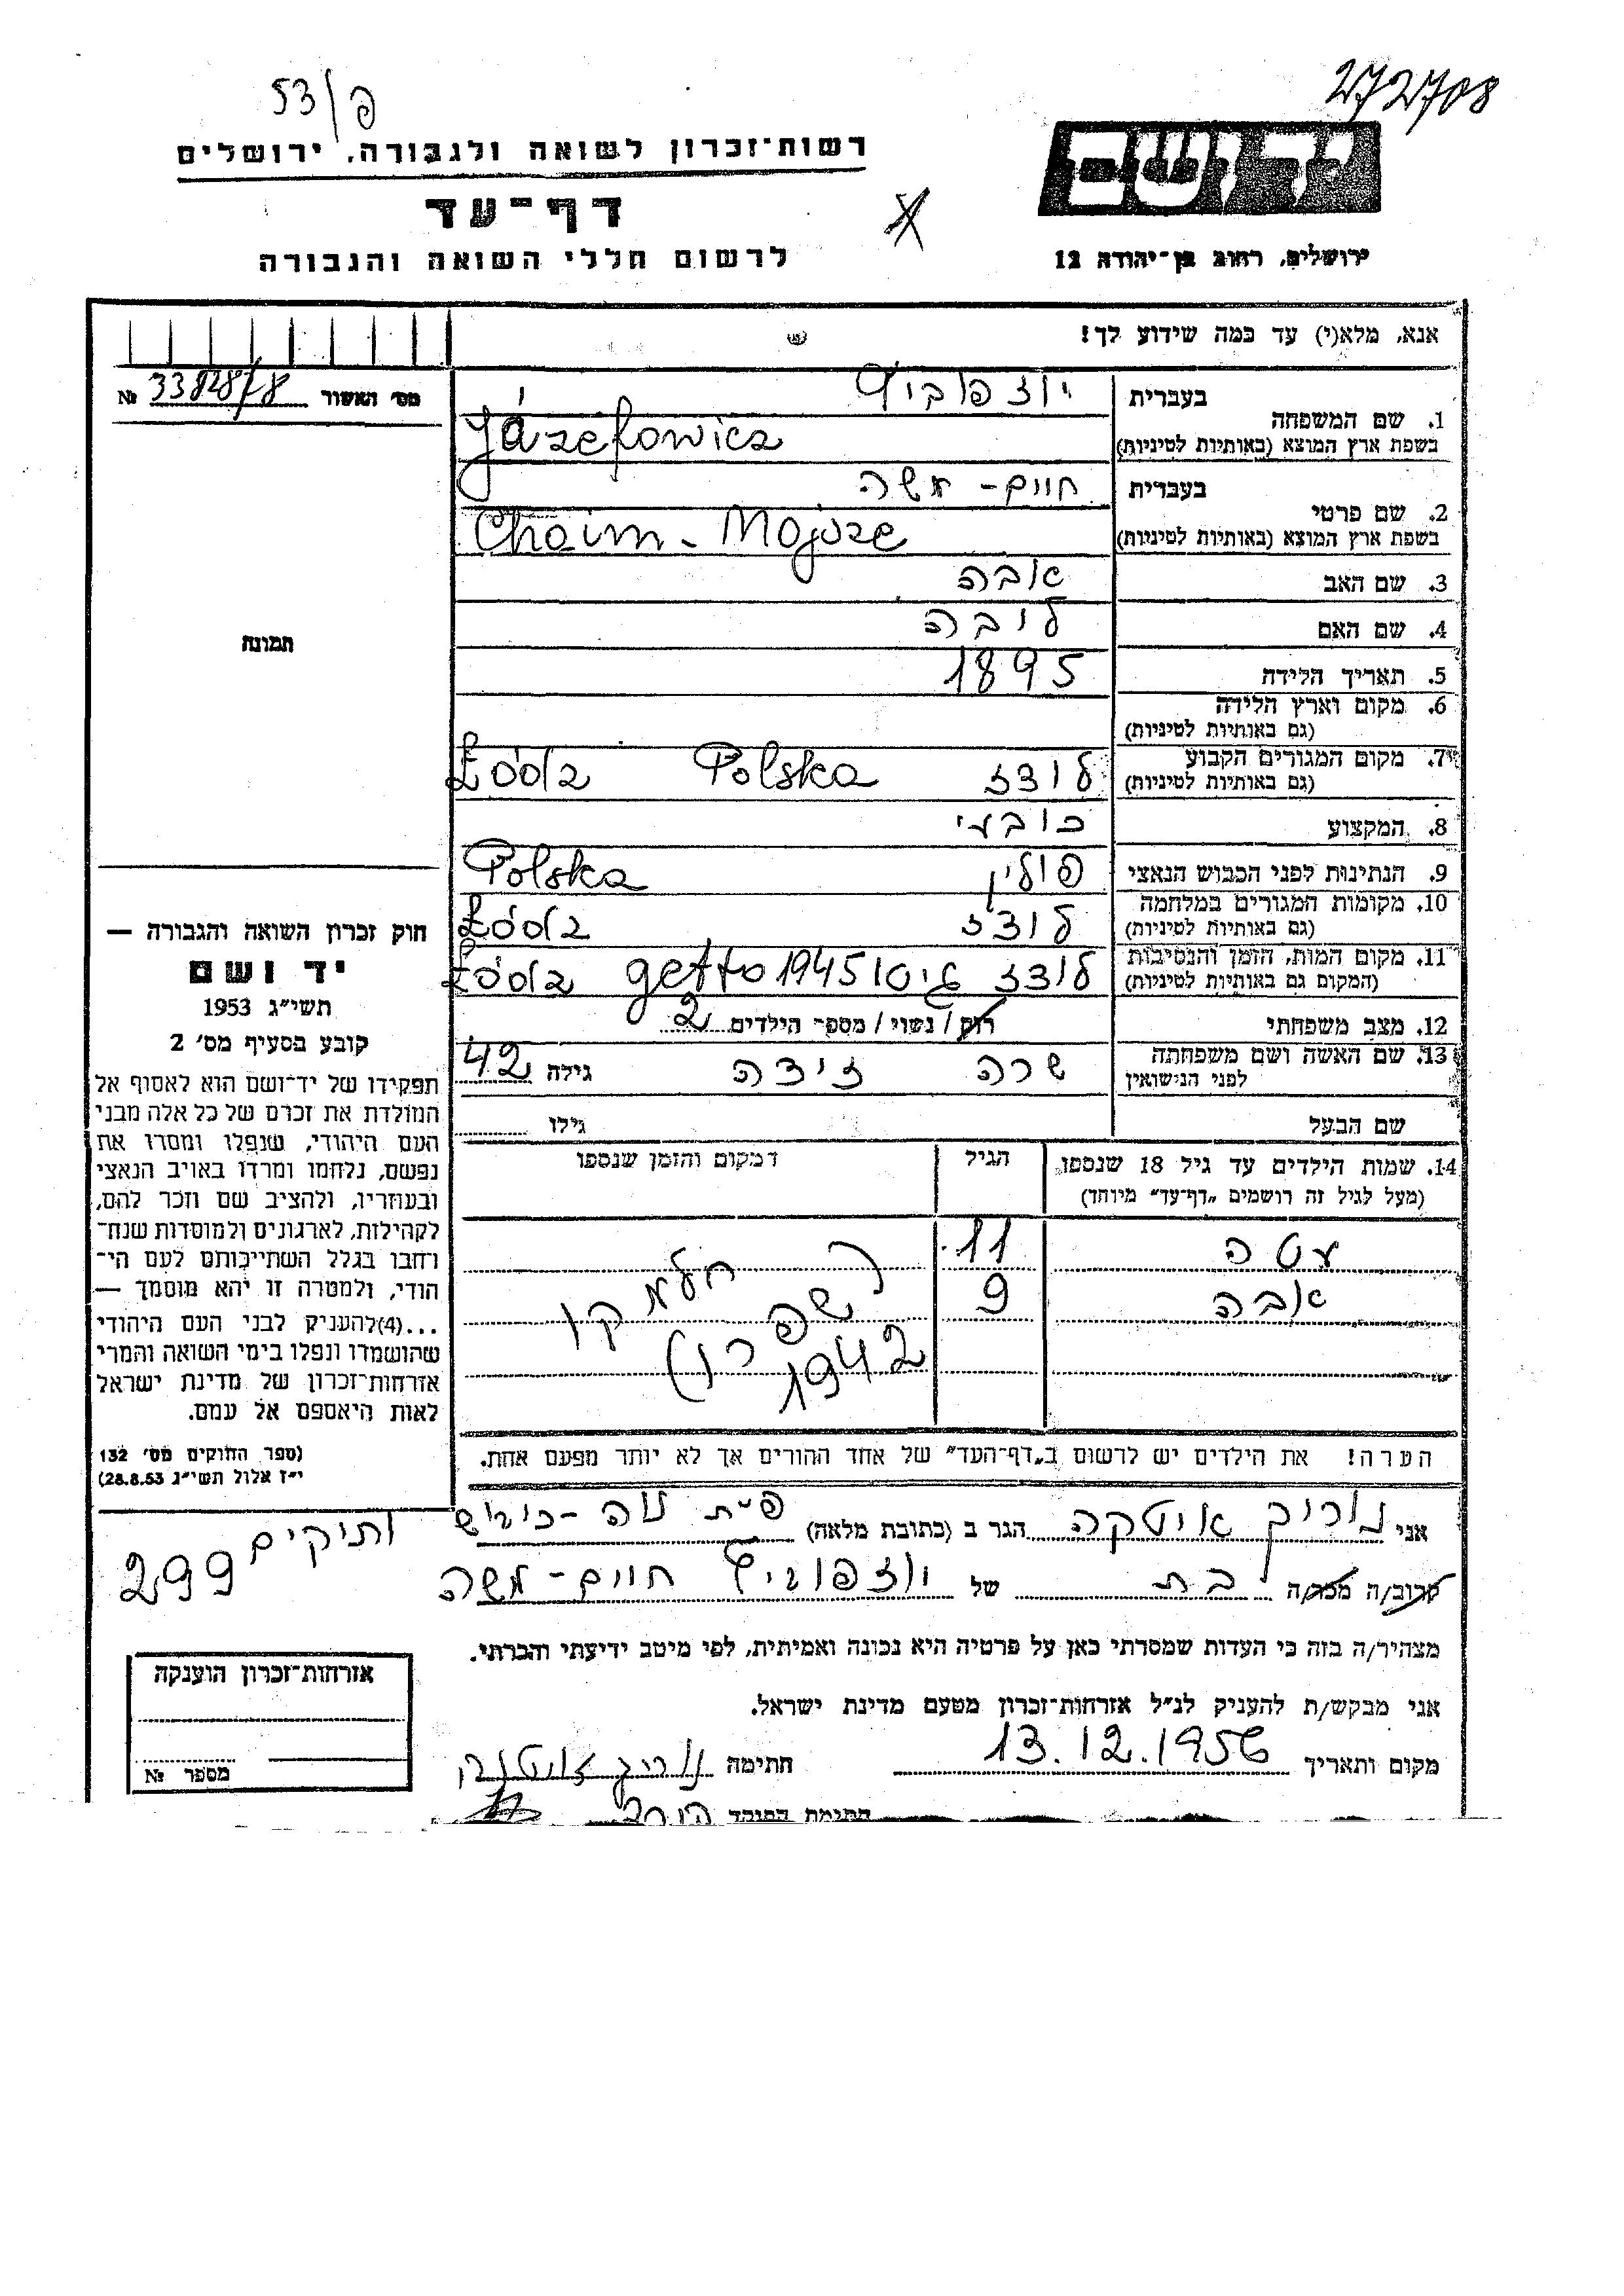 53/פ
272708
רשות־זכרון לשואה ולגבורה, ירושלים
דף־עד
לרשום חללי השואה והגבורה
יד ושם
ירושלים, רחוב בן־יהודה 12
אנא, מלא(י) עד כמה שידוע לך!
מס׳ האשור 33828/8 №
תמונה
1. שם המשפחה
בעברית יוזפוביץ
בשפת ארץ המוצא (באותיות לטיניות) Józefowicz
2. שם פרטי
בעברית חיים - משה
בשפת ארץ המוצא (באותיות לטיניות) Chaim - Mojsze
3. שם האב אבה
4. שם האם ליבה
5. תאריך הלידה 1895
6. מקום וארץ הלידה
(גם באותיות לטיניות)
7. מקום המגורים הקבוע לודז Polska Łódz
(גם באותיות לטיניות)
8. המקצוע כובעי
9. הנתינות לפני הכבוש הנאצי פולין Polska
10. מקומות המגורים במלחמה לודז Łódz
(גם באותיות לטיניות)
11. מקום המות, הזמן והנסיבות לודז גיטו 1945 getto Łódz
(המקום גם באותיות לטיניות)
12. מצב משפחתי רווק / נשוי / מספר הילדים 2
13. שם האשה ושם משפחתה שרה זידה גילה 42
לפני הנישואין
שם הבעל גילו
14. שמות הילדים עד גיל 18 שנספו
(מעל לגיל זה רושמים „דף־עד״ מיוחד)
הגיל
המקום והזמן שנספו
עטה 11
אבה 9
חלמנו
1942
הערה! את הילדים יש לרשום ב„דף־העד״ של אחד ההורים אך לא יותר מפעם אחת.
חוק זכרון השואה והגבורה —
יד ושם
תשי״ג 1953
קובע בסעיף מס׳ 2
תפקידו של יד־ושם הוא לאסוף אל
המולדת את זכרם של כל אלה מבני
העם היהודי, שנפלו ומסרו את
נפשם, נלחמו ומרדו באויב הנאצי
ובעוזריו, ולהציב שם וזכר להם,
לקהילות, לארגונים ולמוסדות שנח־
רחבו בגלל השתייכותם לעם הי־
הודי, ולמטרה זו יהא מוסמך —
...(4)להעניק לבני העם היהודי
שהושמדו ונפלו בימי השואה והמרי
אזרחות־זכרון של מדינת ישראל
לאות היאספם אל עמם.
(ספר החוקים מס׳ 132
י״ז אלול תשי״ג 28.8.53)
אני נוריק איטקה הגר ב (כתובת מלאה) פ״ת נוה -
ותיקים 299
קרוב/ה מכר/ה בת של יוזפוביץ חיים - משה
מצהיר/ה בזה כי העדות שמסרתי כאן על פרטיה היא נכונה ואמיתית, לפי מיטב ידיעתי והכרתי.
אני מבקש/ת להעניק לנ״ל אזרחות־זכרון מטעם מדינת ישראל.
מקום ותאריך 13.12.1956 חתימה נוריק איטקה
חתימת הפוקד
אזרחות־זכרון הוענקה
מספר №